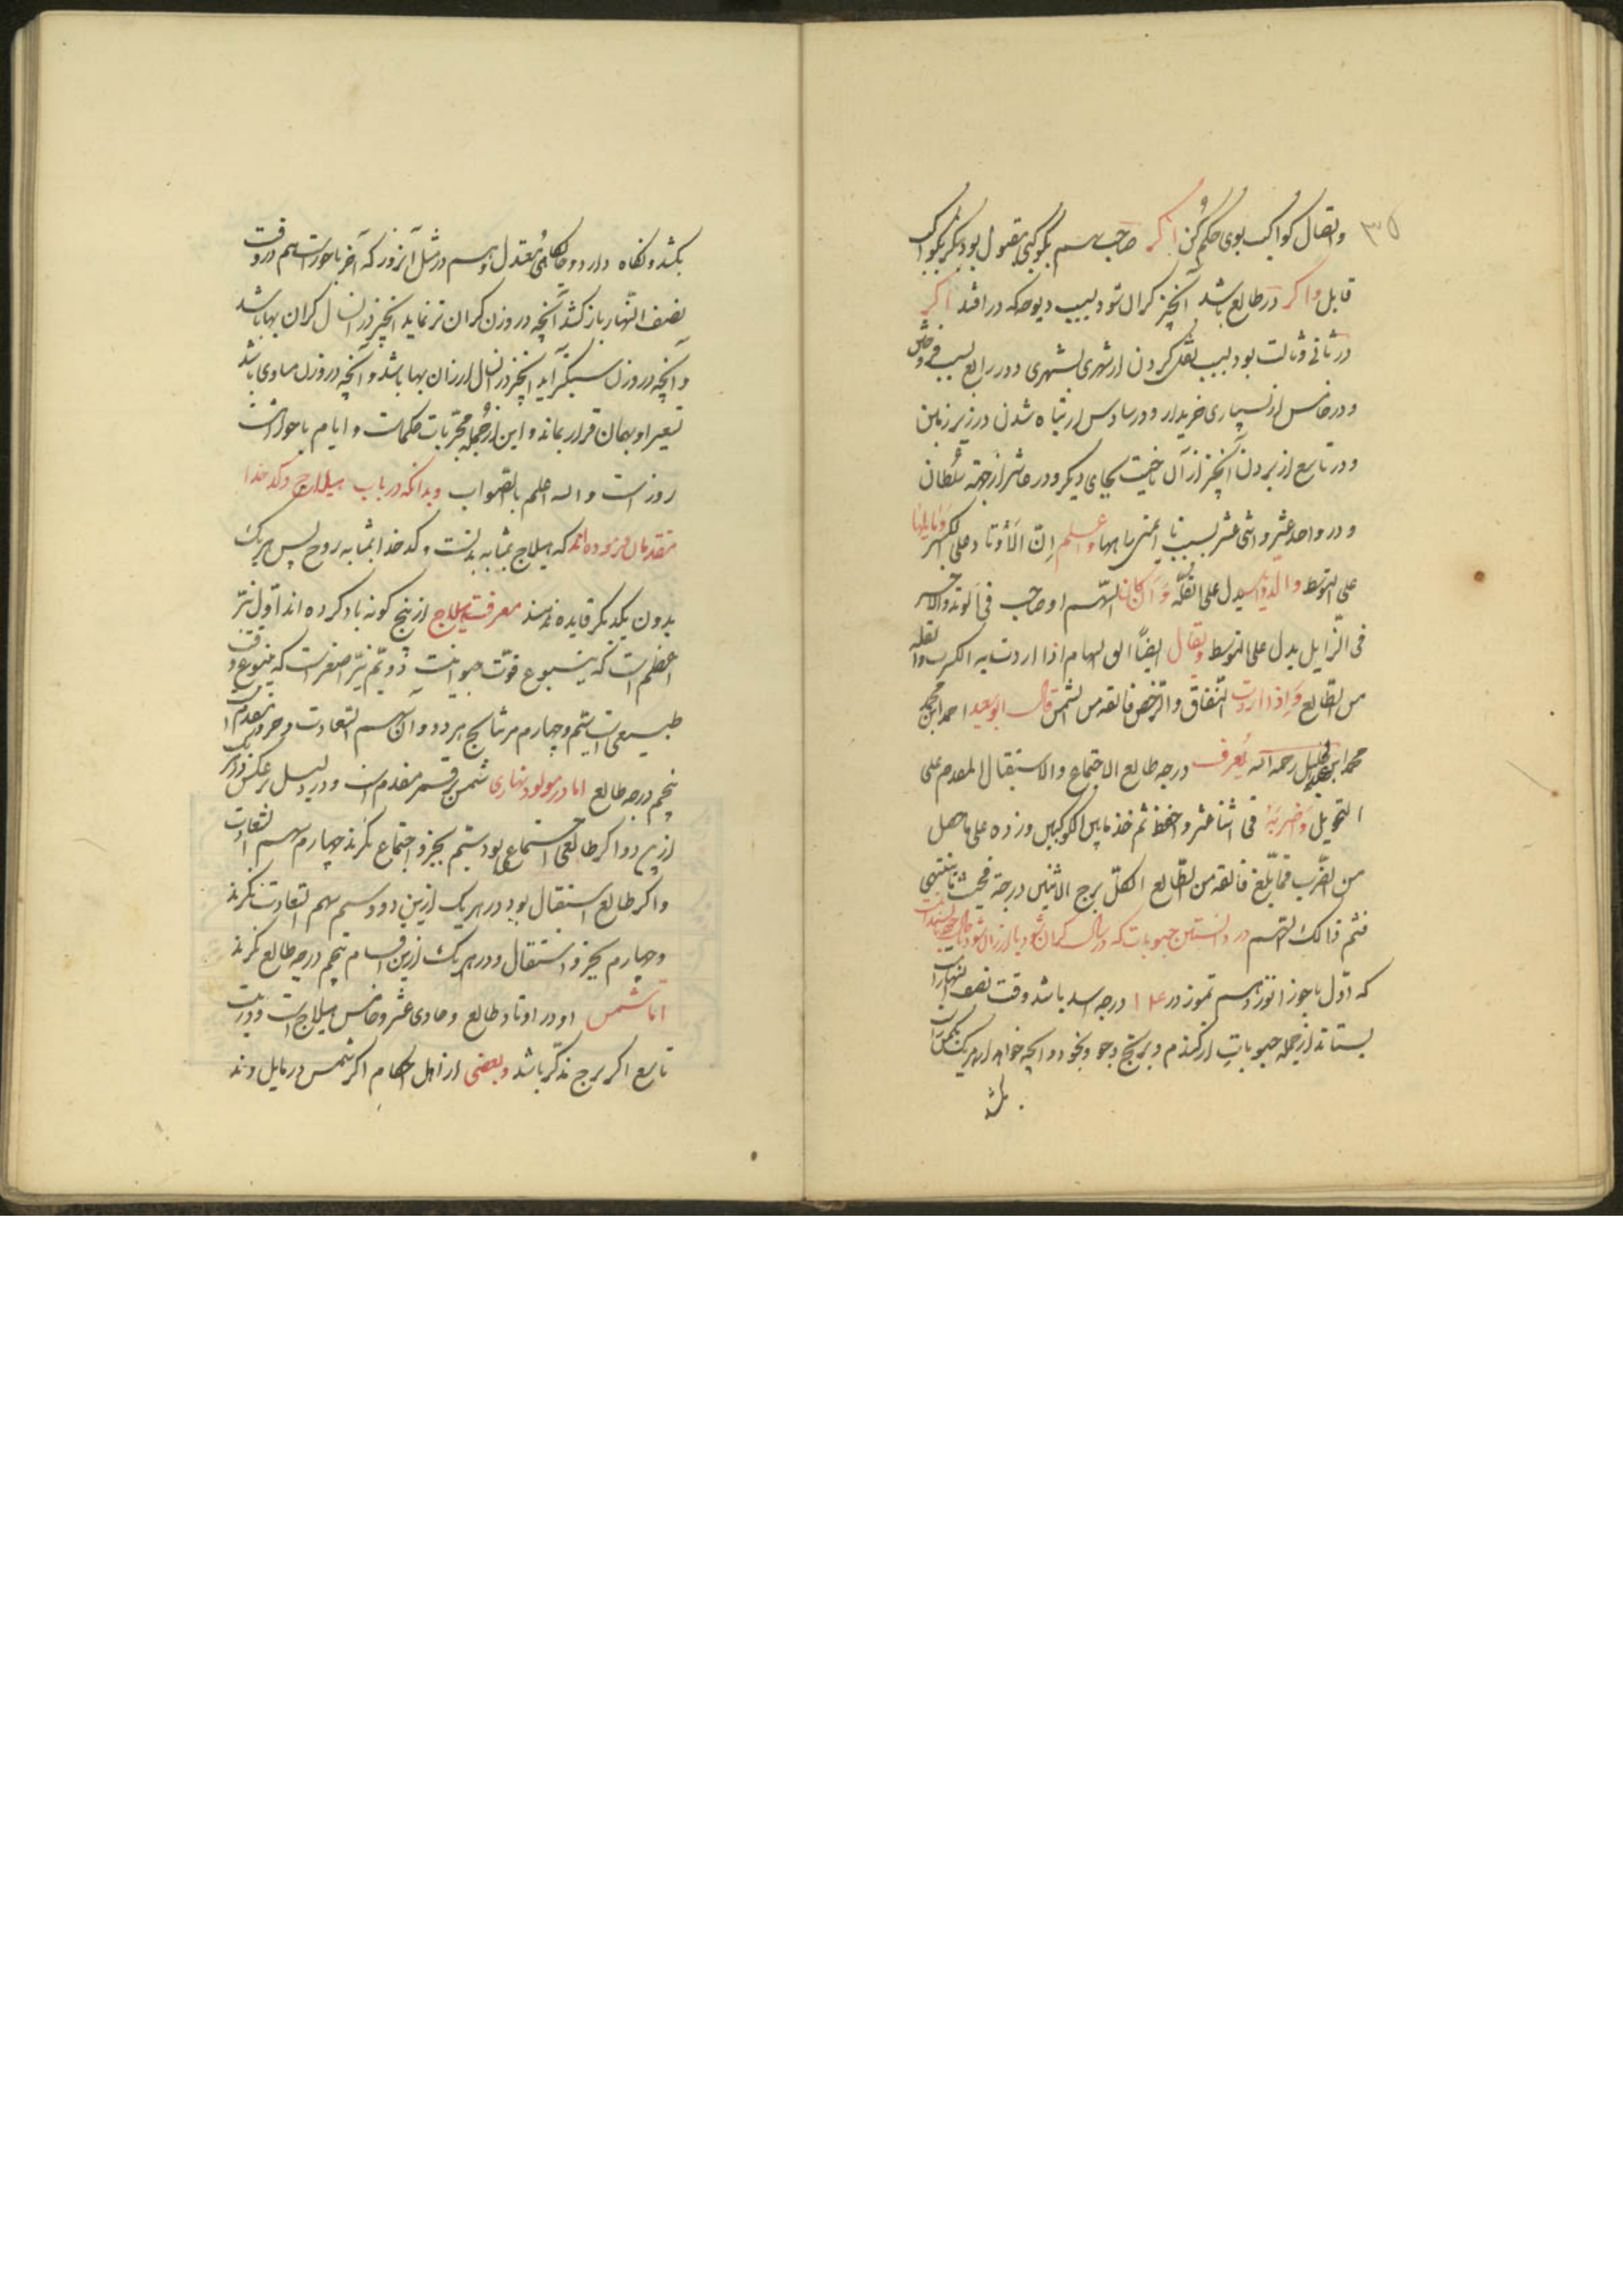 ۳۵
و اتصال کواکب بوی حکم کن اکر صاحب سهم بکوکبی مقبول بود بکر بکواکب
قابل و اکر در طالع باشد آنچیز کران شود بسبب دیو حکه در افتد اکر
در ثانی و ثالث بود بسبب نقل کردن از شهری بشهری و در رابع بسبب
و در خامس از بسیاری خریدار و در سادس از تباه شدن در زیر زمین
و در تاسع از بردن آنچیز از آن ناحیت بجای دیکر و در عاشر از جهة سلطان
و در واحد عشر و اثنی عشر بسبب نا ایمنی راهها و اعلم ان الاوتاد علی الکثیر و مایلیها
علی التوسط و الزوایل یدل علی القله و ان کان السهم او صاحب فی الوتد والاخر
فی الزایل یدل علی التوسط و یقال ایضا الق السهام اذا اردت به الکسب و القله
من الطالع و اذا اردت النفاق و الرخص فالقه من الشمس قال ابوسعید احمد ابن محمد
محمد ابن عبدالجلیل رحمه الله یعرف درجه طالع الاجتماع والاستقبال المقدم علی
التحویل و ضربه فی اثنا عشر و احفظ ثم خذ مابین الکوکبین و زده علی ماحصل
من الضرب فمابلغ فالقه من الطالع لکل برج الاثنین درجة فحیث ما ینتهی
فثم ذالک السهم در دانستن حبوبات که در سال کران شود یا ارزان شود
که اول باحوز از نوزدهم تموز در درجه اسد باشد وقت نصف النهار
بستاند از جمله حبوبات از کندم و برنج و جو و نخود و آنچه خواهد از هر یک
بکشد
بکشد و نکاه دارد و جایگاهی معتدل و هم در مثل آنروز که آخر باحورست هم در وقت
نصف النهار باز کشد آنچه در وزن کران تر نماید آنچیز در آنسال کران بها باشد
و آنچه در وزن سبکتر آید آنچیز در آنسال ارزان بها باشد و آنچه در وزن مساوی باشد
تسعیر او بهمان قرار بماند و این از جمله مجربات حکماست و ایام باحور هشت
روز است و الله اعلم بالصواب و بدانکه در باب هیلاج و کدخدا
متقدمان فرموده اند که هیلاج بمثابه بدنست و کدخدا بمثابه روح پس هریک
بدون یکدیکر فایده ندهند معرفت هیلاج از پنج کونه یاد کرده اند اول نیر
اعظم است که ینبوع قوت حیوانیت دویم نیر اصغر است که ینبوع قوت
طبیعی است سیم و چهارم مر نتایج هر دو و آن سهم السعادت و جزو مقدم است
پنجم درجه طالع اما در مولود نهاری شمس بر قمر مقدم است و در لیل برعکس و در هر یک
ازین دو اکر طالعی اجتماعی بود سیم بجزو اجتماع نکرند چهارم سهم السعادت
و اکر طالع استقبال بود در هر یک ازین دو و سیم سهم السعادت نکرند
و چهارم بجزو استقبال و در هر یک ازین اقسام پنجم درجه طالع نکرند
اما شمس او در اوتاد طالع و حادی عشر و خامس هیلاج است و در بیت
تاسع اکر برج مذکر باشد و بعضی از اهل احکام اکر شمس در مایل وتد